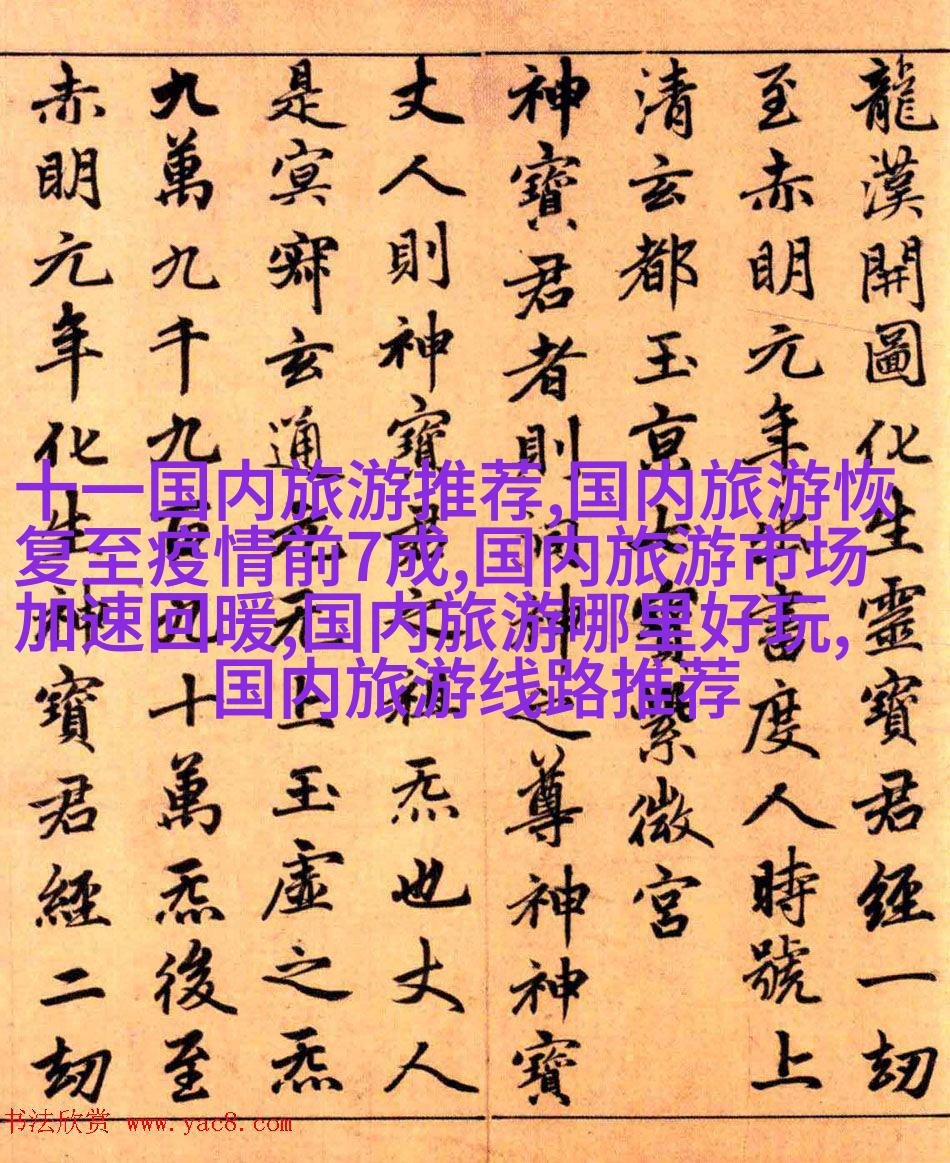 龍漢開圖化生靈寶君經一劫
至赤明元年出書度人時號上
清玄都玉京七寶紫微宮
神寶君者則洞神之尊神神寶
丈人則神寶君之祖炁也丈人
是冥寂玄通元无上玉虛之炁
九萬九千九百九十萬炁後至
赤明元年化生神寶君經二劫
十一国内旅游推荐,国内旅游恢
复至疫情前7成,国内旅游市场
加速回暖,国内旅游哪里好玩,
国内旅游线路推荐
书法欣赏 www.yac8.com